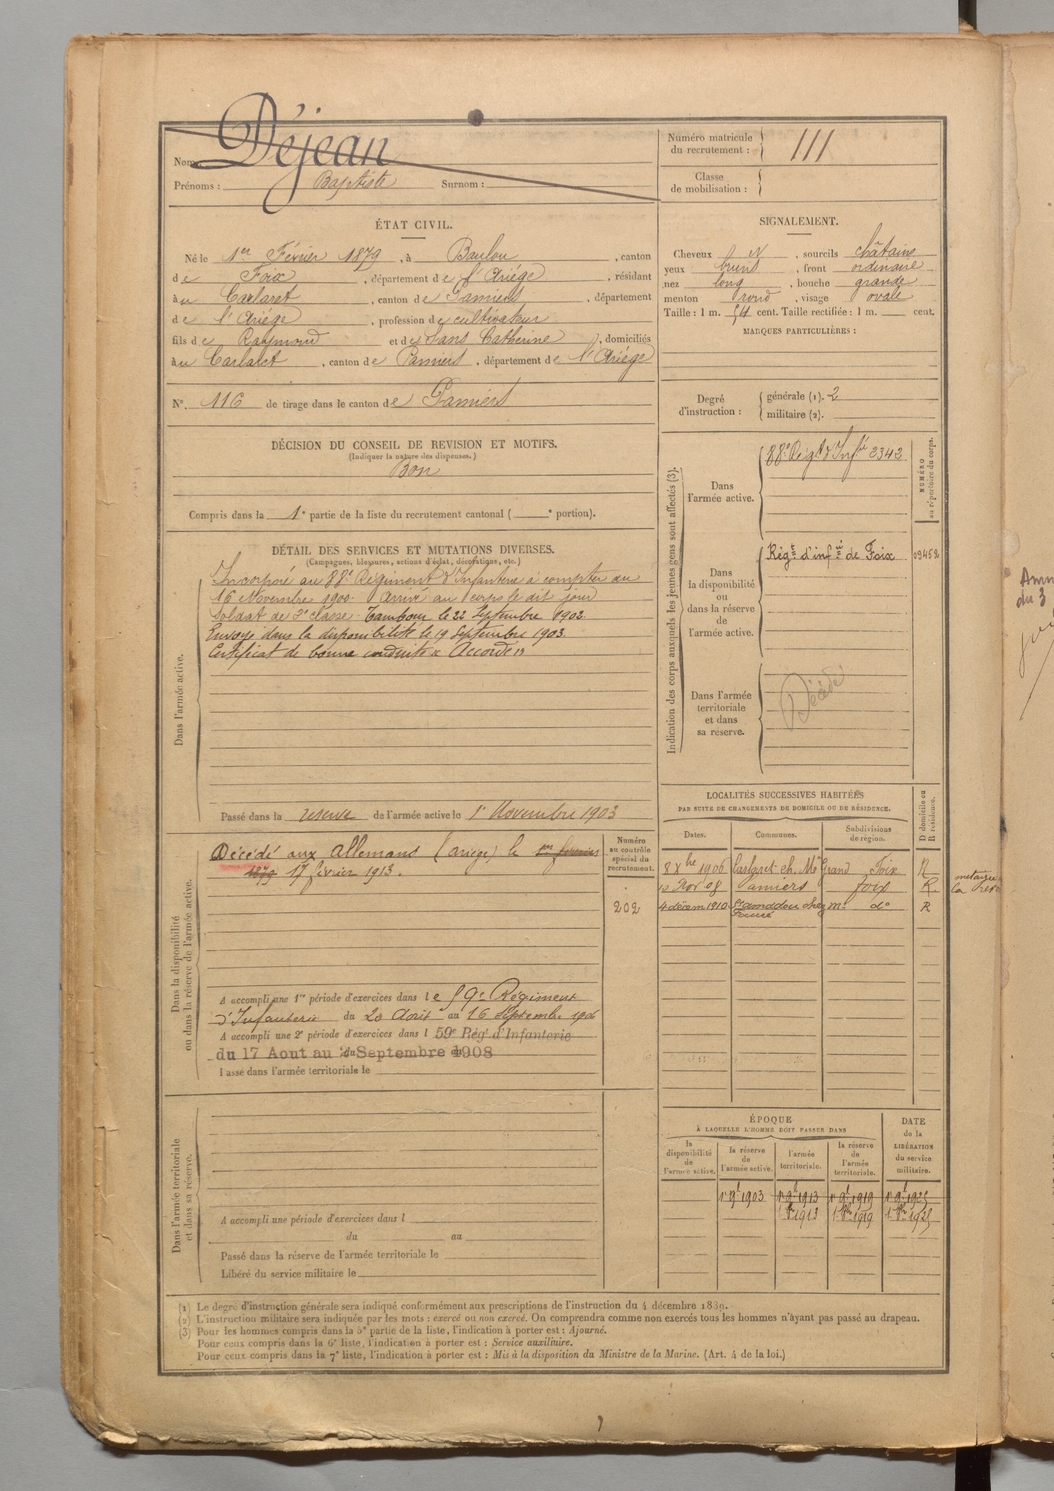 Nom : Déjean
Prénoms : Baptiste Surnom :
Numéro matricule du recrutement : 111
Classe de mobilisation :
ÉTAT CIVIL.
Né le 1er Février 1879, à Baulou, canton
de Foix, département de l'Ariège, résidant
à u Carlaret, canton de Pamiers, département
de l'Ariège, profession de cultivateur
fils de Raymond et de Sans Catherine, domiciliés
à u Carlaret, canton de Pamiers, département de l'Ariège
N° 116 de tirage dans le canton de Pamiers
SIGNALEMENT.
Cheveux N, sourcils châtains
yeux bruns, front ordinaire
nez long, bouche grande
menton rond, visage ovale
Taille : 1 m. cent. Taille rectifiée : 1 m. cent.
MARQUES PARTICULIÈRES :
Degré d'instruction : générale (1). 2
militaire (2).
DÉCISION DU CONSEIL DE REVISION ET MOTIFS.
(Indiquer la nature des dispenses.)
Bon
Compris dans la 1e partie de la liste du recrutement cantonal ( e portion).
DÉTAIL DES SERVICES ET MUTATIONS DIVERSES.
(Campagnes, blessures, actions d'éclat, décorations, etc.)
Dans l'armée active.
Incorporé au 88e Régiment d'Infanterie à compter du
16 Novembre 1900. Arrivé au corps le dit jour
Soldat de 2e classe. Tambour le 22 Septembre 1902.
Envoyé dans la disponibilité le 19 Septembre 1903.
Certificat de bonne conduite Accordé
Passé dans la réserve de l'armée active le 1er Novembre 1903
Indication des corps auxquels les jeunes gens sont affectés (3).
NUMÉRO au répertoire du corps.
Dans l'armée active.
88e Régt d'Infie 2342
Dans la disponibilité ou dans la réserve de l'armée active.
Régt d'infie de Foix 09452
Dans l'armée territoriale et dans sa réserve.
Décédé
LOCALITÉS SUCCESSIVES HABITÉES
PAR SUITE DE CHANGEMENTS DE DOMICILE OU DE RÉSIDENCE.
D domicile ou R résidence.
Dates. Communes. Subdivisions de région.
8 Xbre 1906 Carlaret ch. Mr Grand Foix R
Nov 08 Pamiers Foix R
4 décem 1910 chez m. do R
Dans la disponibilité ou dans la réserve de l'armée active.
Numéro au contrôle spécial du recrutement.
202
Décédé aux Allemans (Ariège) le 1er février
1879 17 février 1913.
A accompli une 1re période d'exercices dans le 59e Régiment
d'Infanterie du 20 Août au 16 Septembre 1906
A accompli une 2e période d'exercices dans l 59e Régt d'Infanterie
du 17 Aout au Septembre 1908
Passé dans l'armée territoriale le
Dans l'armée territoriale et dans sa réserve.
A accompli une période d'exercices dans l
du au
Passé dans la réserve de l'armée territoriale le
Libéré du service militaire le
ÉPOQUE
À LAQUELLE L'HOMME DOIT PASSER DANS
la disponibilité de l'armée active.
la réserve de l'armée active.
l'armée territoriale.
la réserve de l'armée territoriale.
DATE de la LIBÉRATION du service militaire.
1r 9b 1903 1r 9b 1913 1r 9b 1919 1r 9b 1925
1913 1919 1925
(1) Le degré d'instruction générale sera indiqué conformément aux prescriptions de l'instruction du 4 décembre 1889.
(2) L'instruction militaire sera indiquée par les mots : exercé ou non exercé. On comprendra comme non exercés tous les hommes n'ayant pas passé au drapeau.
(3) Pour les hommes compris dans la 5e partie de la liste, l'indication à porter est : Ajourné.
Pour ceux compris dans la 6e liste, l'indication à porter est : Service auxiliaire.
Pour ceux compris dans la 7e liste, l'indication à porter est : Mis à la disposition du Ministre de la Marine. (Art. 4 de la loi.)